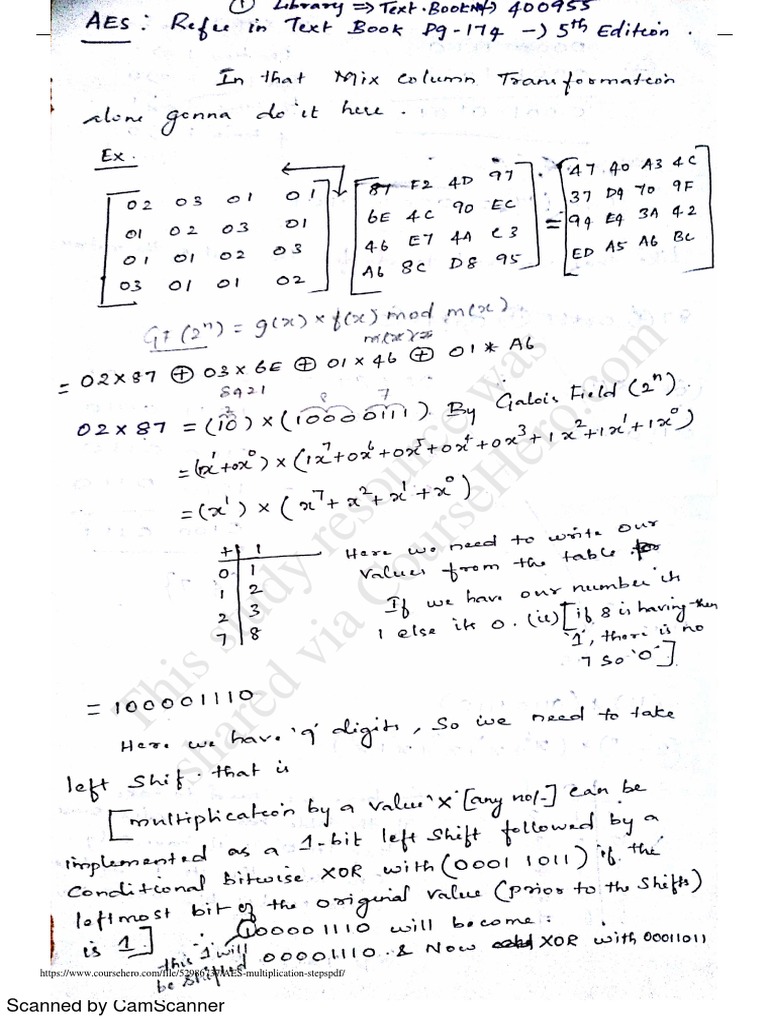 ① Library ⇒ Text-Book No) 400955
AES: Refer in Text Book Pg-174 → 5th Edition.
In that Mix column Transformation
alone gonna do it here.
Ex.
[02 03 01 01] [87 F2 4D 97] = [47 40 A3 4C]
[01 02 03 01] [6E 4C 90 EC] [37 D4 70 9F]
[01 01 02 03] [46 E7 4A C3] [94 E4 3A 42]
[03 01 01 02] [A6 8C D8 95] [ED A5 A6 BC]
GF(2ⁿ) = g(x) × f(x) mod m(x).
m(x)=
= 02×87 ⊕ 03×6E ⊕ 01×46 ⊕ 01*A6
8421
02×87 = (10) × (10000111) By Galois Field (2ⁿ).
= (x¹+0x⁰) × (1x⁷+0x⁶+0x⁵+0x⁴+0x³+1x²+1x¹+1x⁰)
= (x¹) × (x⁷+x²+x¹+x⁰)
+ | 1
0 | 1
1 | 2
2 | 3
7 | 8
Here we need to write our
values from the table for
If we have our number its
1 else its 0. (ie) [if 8 is having then
'1', there is no
7 so '0']
= 100001110
Here we have '9' digits, so we need to take
left shif. that is
[multiplication by a value 'x' [any no/-] can be
implemented as a 1-bit left shift followed by a
conditional bitwise XOR with (0001 1011) if the
leftmost bit of the original value (prior to the shifts)
is 1] 100001110 will become:
this 1 will be shifted 00001110 & Now XOR with 00011011
https://www.coursehero.com/file/52986737/AES-multiplication-stepspdf/
This study resource was
shared via CourseHero.com
Scanned by CamScanner